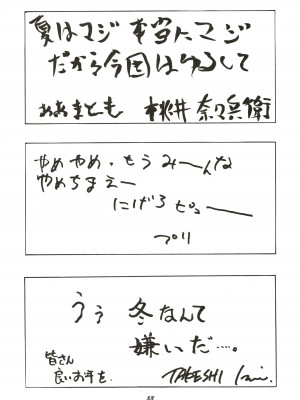 夏はマジ本当にマジ
だから今回はゆるして
おおまとも 桃井奈々兵衛
やめやめ・もうみーんな
やめちまえー
にげろピューーー
プリ
うぅ 冬なんて
嫌いだ……。
皆さん
良いお年を。
TAKESHI